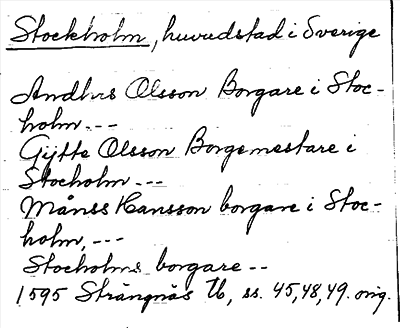 Stockholm, huvudstad i Sverige
Andhrs Olsson Borgare i Stoc-
holm ---
Gijtte Olsson Borgemestare i
Stocholm ---
Månss Hansson borgare i Stoc-
holm, ---
Stocholms borgare --
1595 Strängnäs Tb, ss. 45, 48, 49. orig.